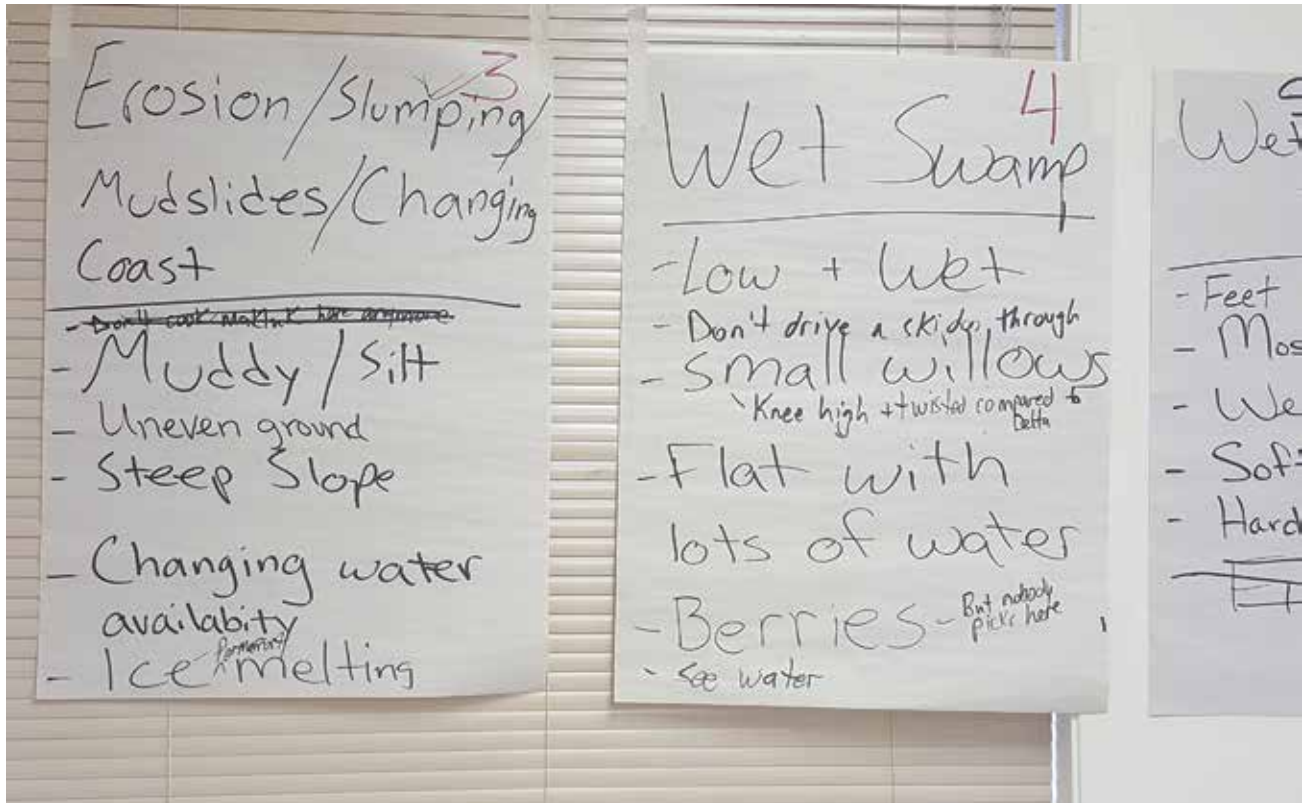 3
Erosion/Slumping/
Mudslides/Changing
Coast
- Don't cook maktuk here anymore
- Muddy/Silt
- Uneven ground
- Steep Slope
- Changing water
availabity
- Ice melting
4
Wet Swamp
- Low + Wet
- Don't drive a skidoo through
- Small willows
Knee high + twisted compared to
Delta
- Flat with
lots of water
- Berries - But nobody
picks here
- see water
Wet
- Feet
- Mos
- We
- Sof
- Hard